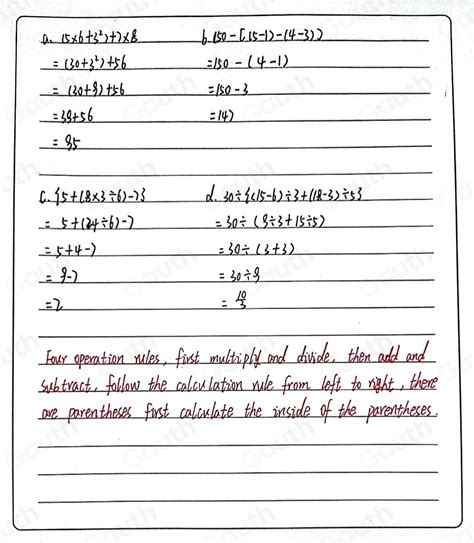 a. (5×6+3²)+7×8
= (30+3²)+56
= (30+9)+56
=39+56
= 95
b. 150-[(5-1)-(4-3)]
=150 - (4-1)
= 150-3
=147
c. {5+(8×3÷6)-7}
= 5+(24÷6)-7
= 5+4-7
= 9-7
=2
d. 30÷{(15-6)÷3+(18-3)÷5}
= 30÷(9÷3+15÷5)
= 30÷(3+3)
= 30÷9
= 10/3
Four operation rules, first multiply and divide, then add and
subtract, follow the calculation rule from left to right, there
are parentheses first calculate the inside of the parentheses.